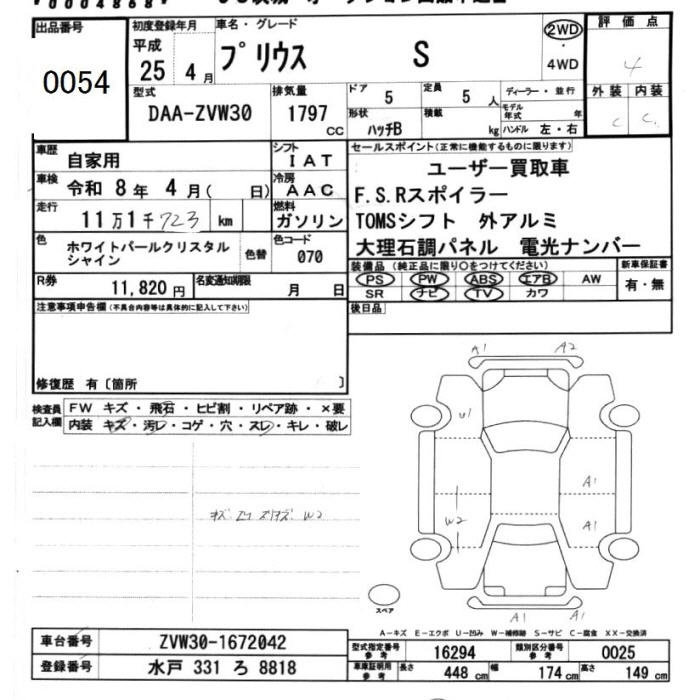 出品番号 初度登録年月 車名・グレード 評価点
0054 平成 25 4月 プリウス S 2WD・4WD 4
型式 排気量 ドア 5 定員 5人 ディーラー・並行 外装 内装
DAA-ZVW30 1797cc 形状 ハッチB 積載 kg モデル年式 年 ハンドル 左・右 C C
車歴 自家用 シフト IAT セールスポイント(正常に機能するものに限ります)
車検 令和 8年 4月( 日) 冷房 AAC ユーザー買取車
走行 11万1千723 km 燃料 ガソリン F.S.Rスポイラー
TOMSシフト 外アルミ
色 ホワイトパールクリスタルシャイン 色替 色コード 070 大理石調パネル 電光ナンバー
装備品(純正品に限り○をつけてください) 新車保証書
R券 11,820円 名変通知期限 月 日 PS PW ABS エアB AW 有・無
SR ナビ TV カワ
注意事項申告欄(不具合内容等は具体的に記入して下さい) 後日品
修復歴 有〔箇所 〕
検査員記入欄 FW キズ・飛石・ヒビ割・リペア跡・×要
内装 キズ・汚レ・コゲ・穴・スレ・キレ・破レ
A1 A2
U1
A1
W2 A1
W2
スペア
A1 A1
A-キズ E-エクボ U-凹み W-補修跡 S-サビ C-腐食 XX-交換済
車台番号 ZVW30-1672042 型式指定番号 参考 16294 類別区分番号 参考 0025
登録番号 水戸 331 ろ 8818 車庫証明用 参考 長さ 448cm 幅 174cm 高さ 149cm